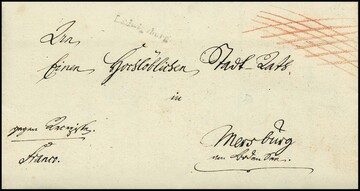 Ludwigsburg
An
Einen Hochlöblichen Stadt-Rath
in
Mersburg
am Bodensee.
gegen Recepisse.
Franco.